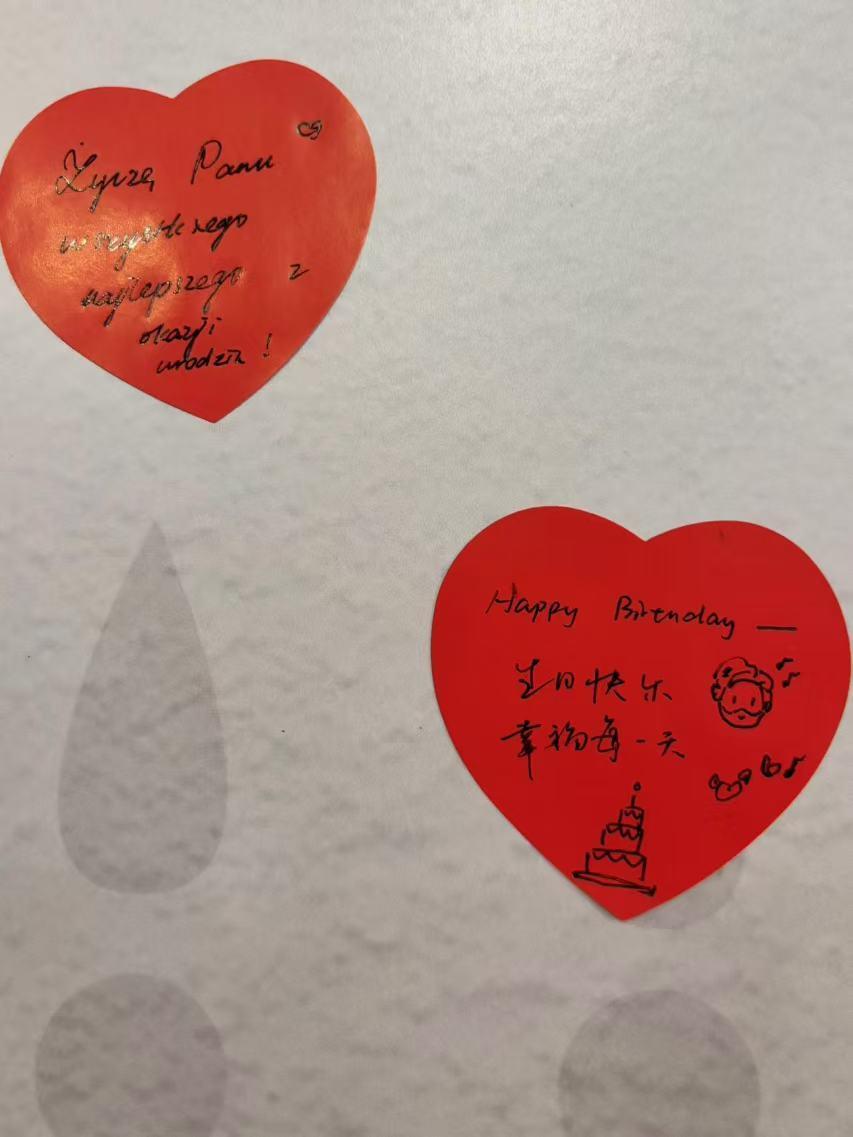 Życzę Panu
wszystkiego
najlepszego z
okazji
urodzin!
Happy Birthday
生日快乐
幸福每一天